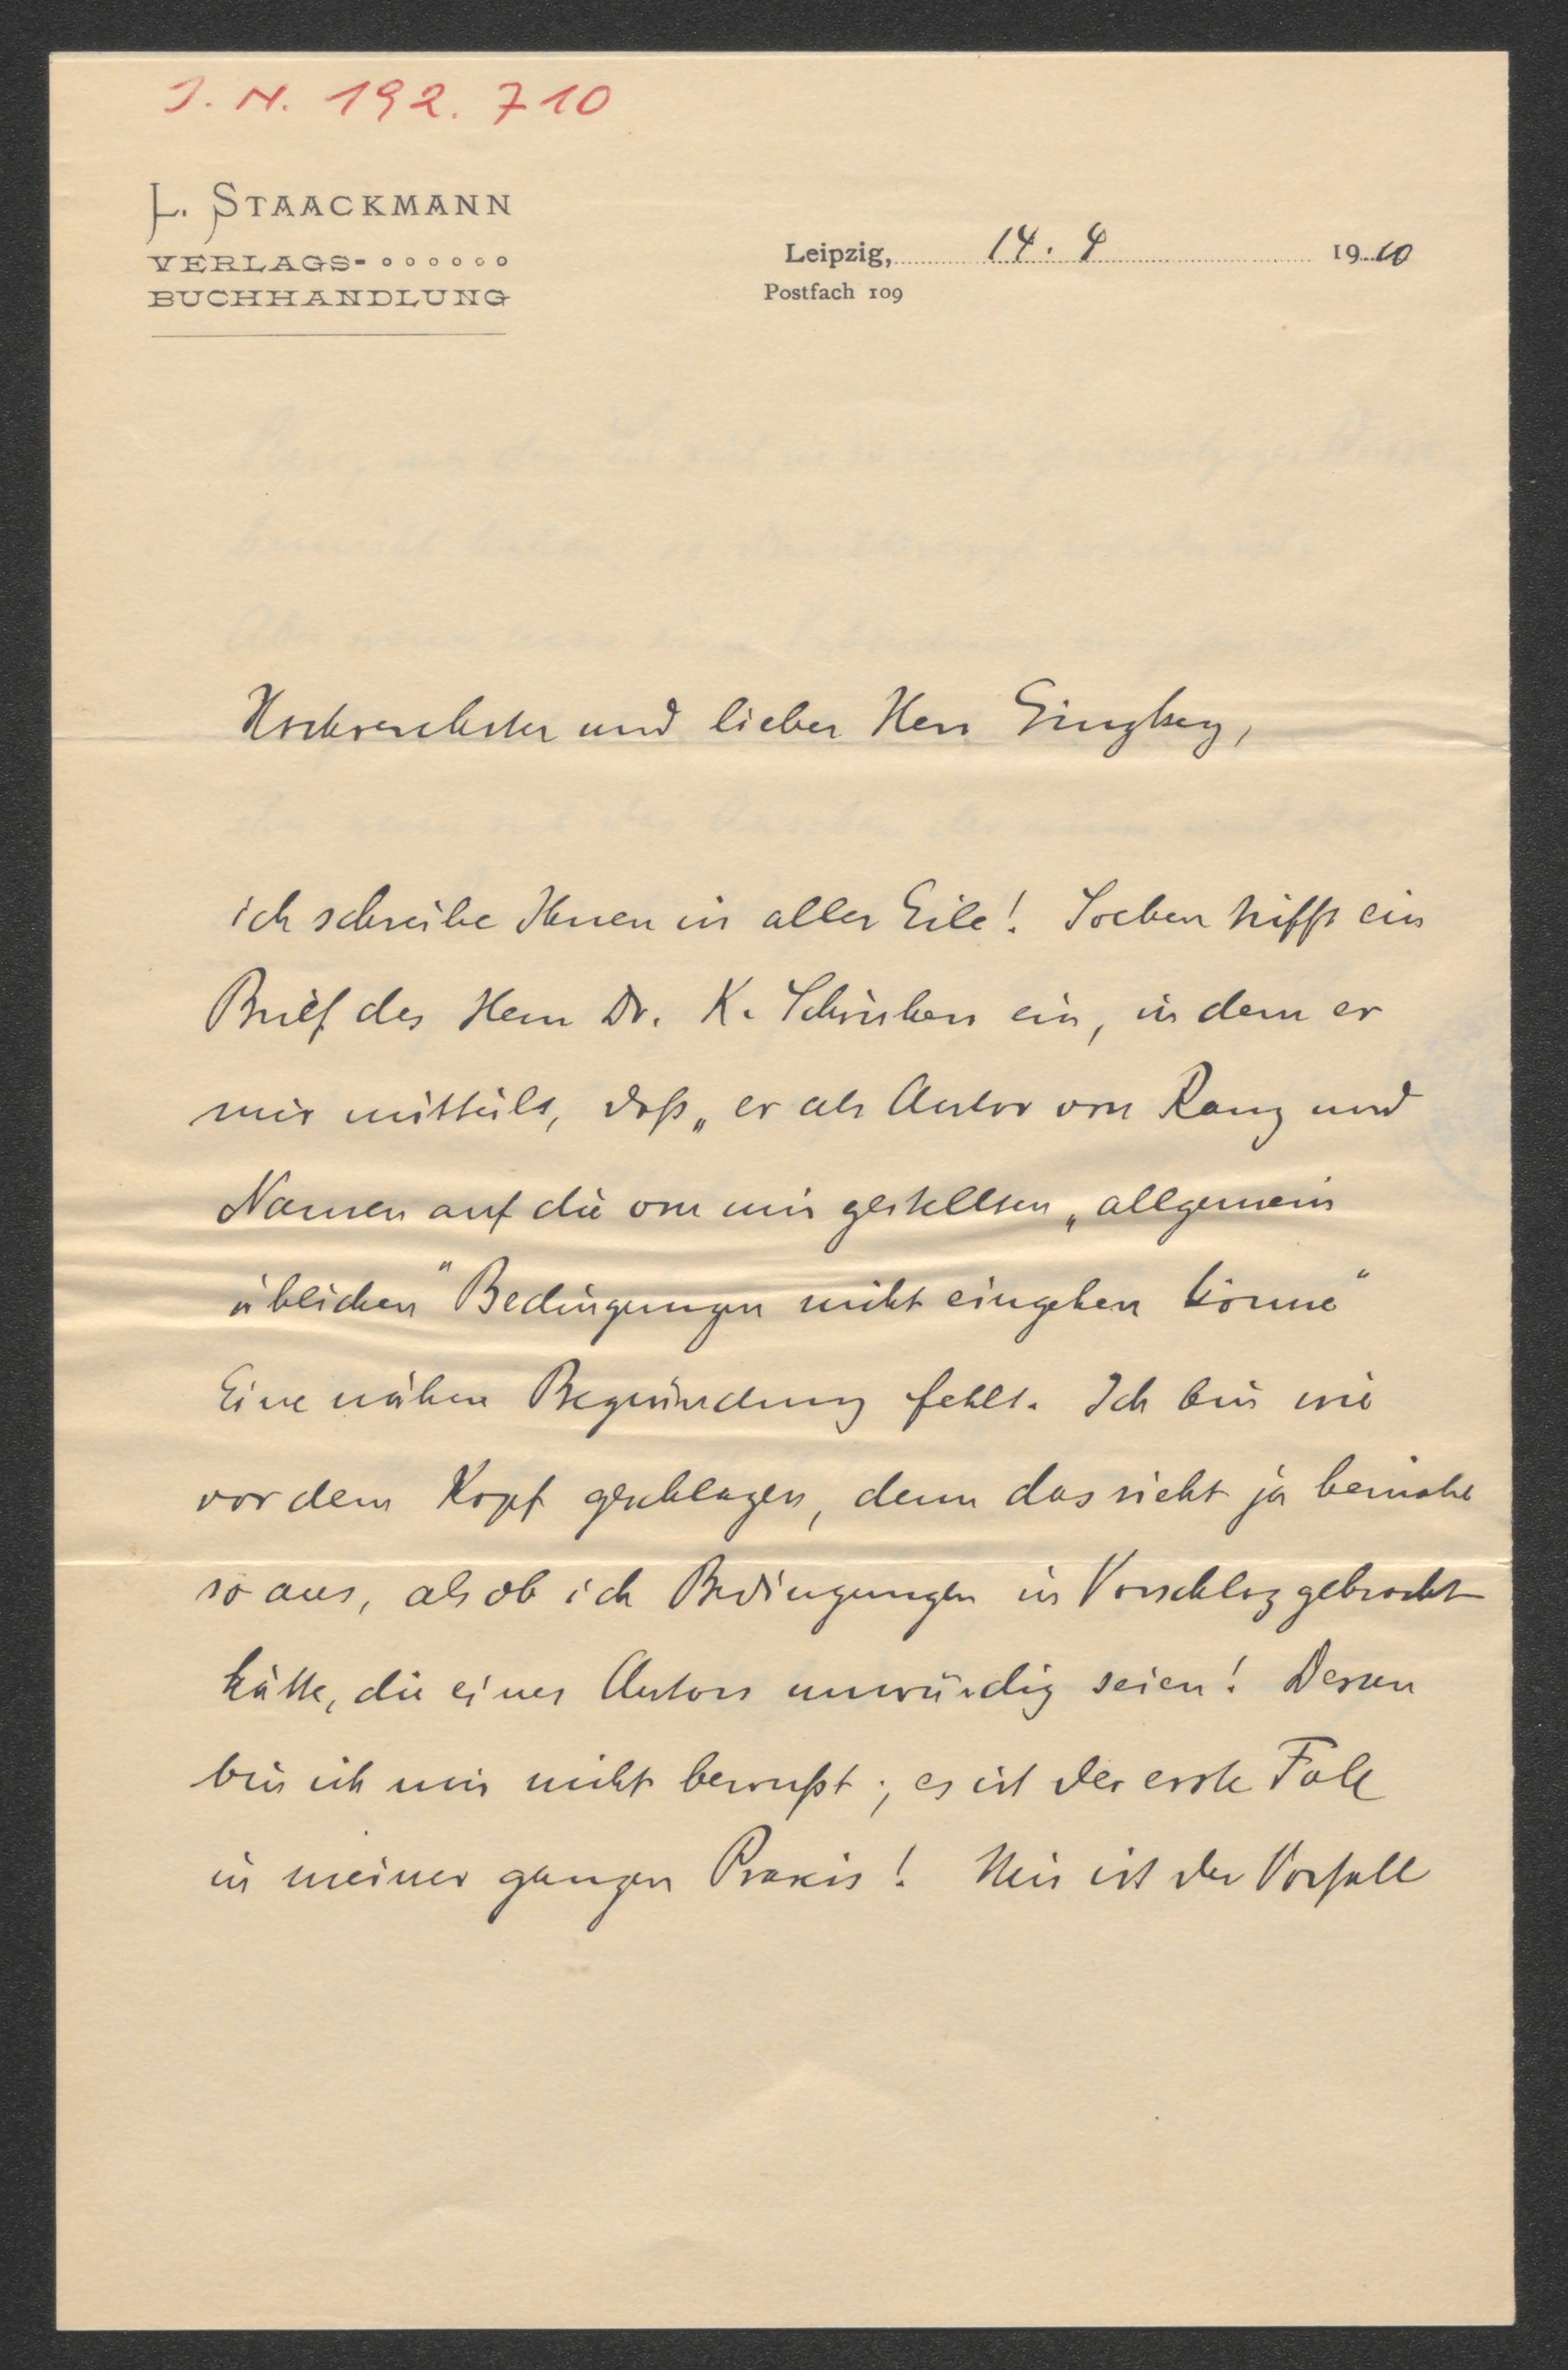 J. N. 192.710
L. STAACKMANN
VERLAGS-
BUCHHANDLUNG
Leipzig, 14. 4 1910
Postfach 109
Hochverehrter und lieber Herr Ginzkey,
ich schreibe Ihnen in aller Eile! Soeben trifft ein
Brief des Herrn Dr. K. ein, in dem er
mir mitteilt, daß „er als Autor von Rang und
Namen auf die von mir gestellten „allgemein
üblichen" Bedingungen nicht eingehen könne"
Eine nähere Begründung fehlt. Ich bin wie
vor dem Kopf geschlagen, denn das sieht ja beinahe
so aus, als ob ich Bedingungen in Vorschlag gebracht
hätte, die eines Autors unwürdig seien! Dessen
bin ich mir nicht bewußt; es ist der erste Fall
in meiner ganzen Praxis! Mir ist der Vorfall